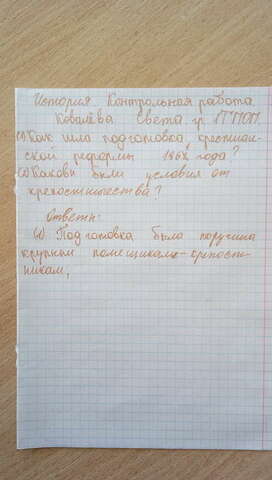 История. Контрольная работа.
Ковалёва Света гр. 1ТПОП
1) Как шла подготовка крестьян-
ской реформы 1861 года?
2) Каковы были условия от
крепостничества?
Ответы:
1) Подготовка была поручена
крупным помещикам-крепост-
никам,